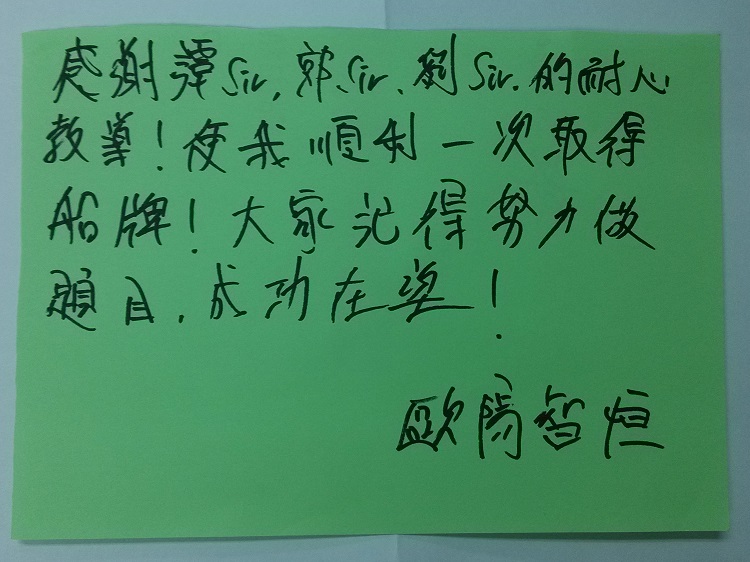 感謝譚Sir, 郭Sir、劉Sir.的耐心
教導！使我順利一次取得
船牌！大家記得努力做
題目，成功在望！
歐陽智恒